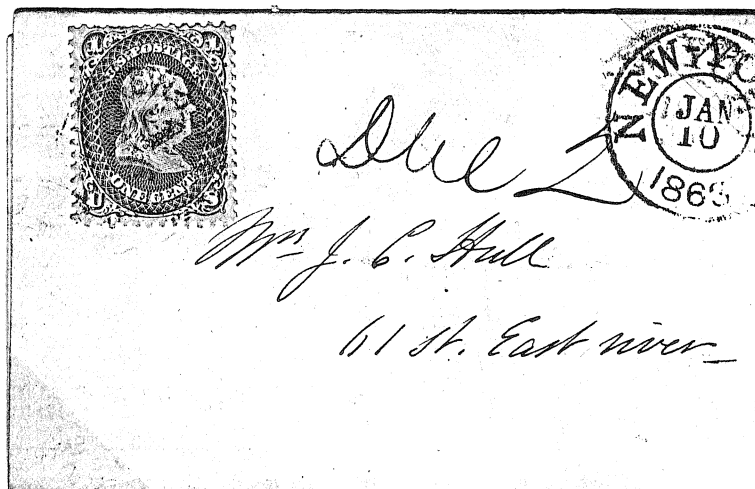 1 1
U.S. POSTAGE
ONE CENT
U S
NEW-YO
JAN
10
Due 2
Mrs J. C. Hull
61 St. East river